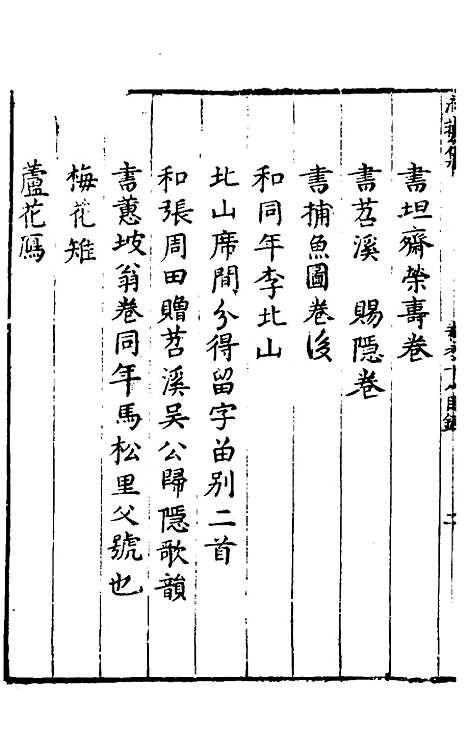 書坦齋榮壽卷
書苕溪　賜隱卷
書捕魚圖卷後
和同年李北山
北山席間分得留字畱別二首
和張周田贈苕溪吳公歸隱歌韻
書蕙坡翁卷同年馬松里父號也
梅花雉
蘆花鴈